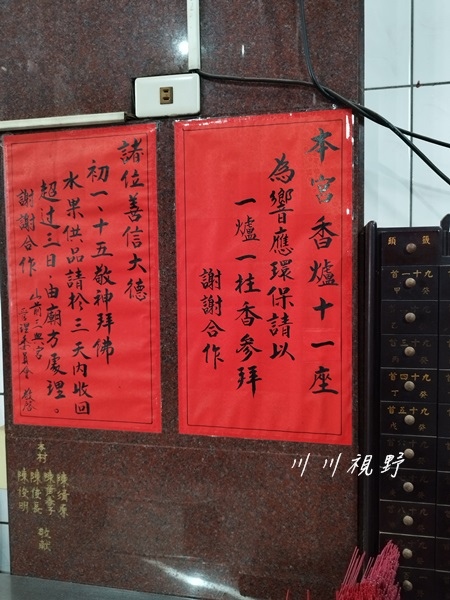 本宮香爐十一座
為響應環保請以
一爐一柱香參拜
謝謝合作
諸位善信大德
初一、十五敬神拜佛
水果供品請於三天內收回
超过三日,由廟方處理。
謝謝合作
管理委員會 啟
本村
敬獻
陳俊長
陳俊明
川川視野
籤號
首一十九
首三十九
首四十九
首五十九